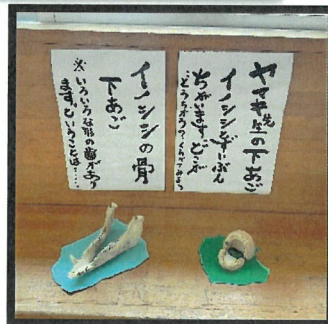 ヤマキ先生の下あご
イノシシずいぶん
ちがいます。どこが
どうちがう？くらべてみよう
イノシシの骨
下あご
※いろいろな形の歯があり
ます。ということは……